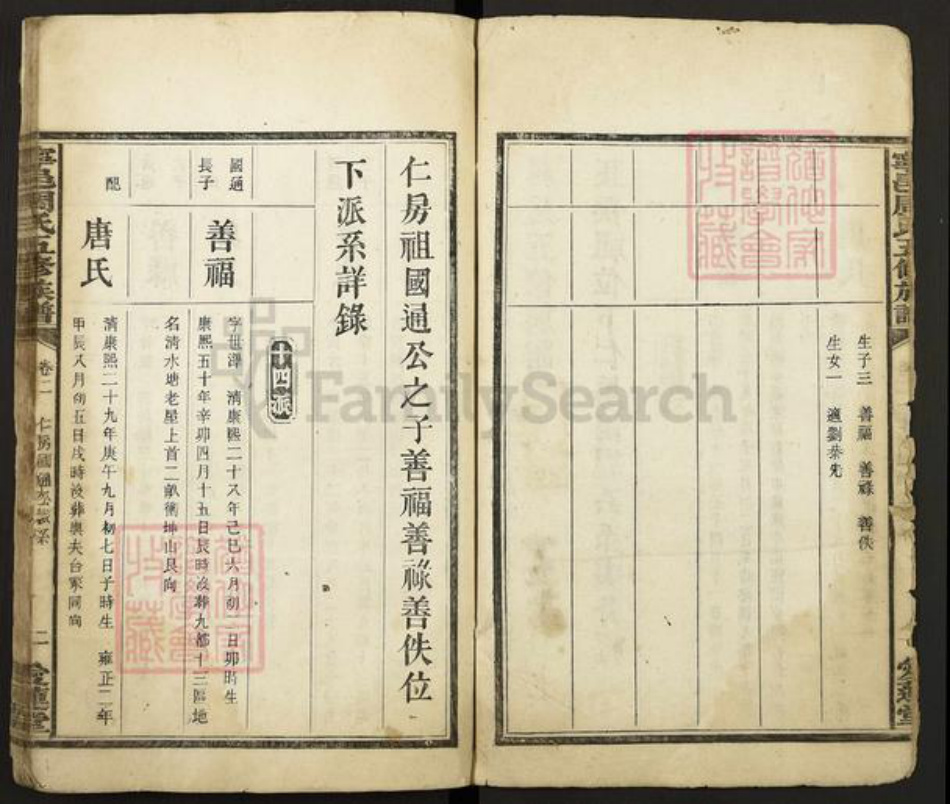 生子三 善福 善祿 善佚
生女一 適劉恭先
仁房祖國通公之子善福善祿善佚位
下派系詳錄
十四派
國通
長子
善福
字世澤 清康熙二十八年己巳六月初一日卯時生
康熙五十年辛卯四月十五日辰時歿葬九都十三區地
名清水塘老屋上首二畝衝坤山艮向
配
唐氏
清康熙二十九年庚午九月初七日子時生 雍正二年
甲辰八月初五日戌時歿葬與夫台冢同向
寧邑周氏五修族譜
卷二 仁房國通公派系
二
愛蓮堂
寧邑周氏五修族譜
愛蓮堂
FamilySearch